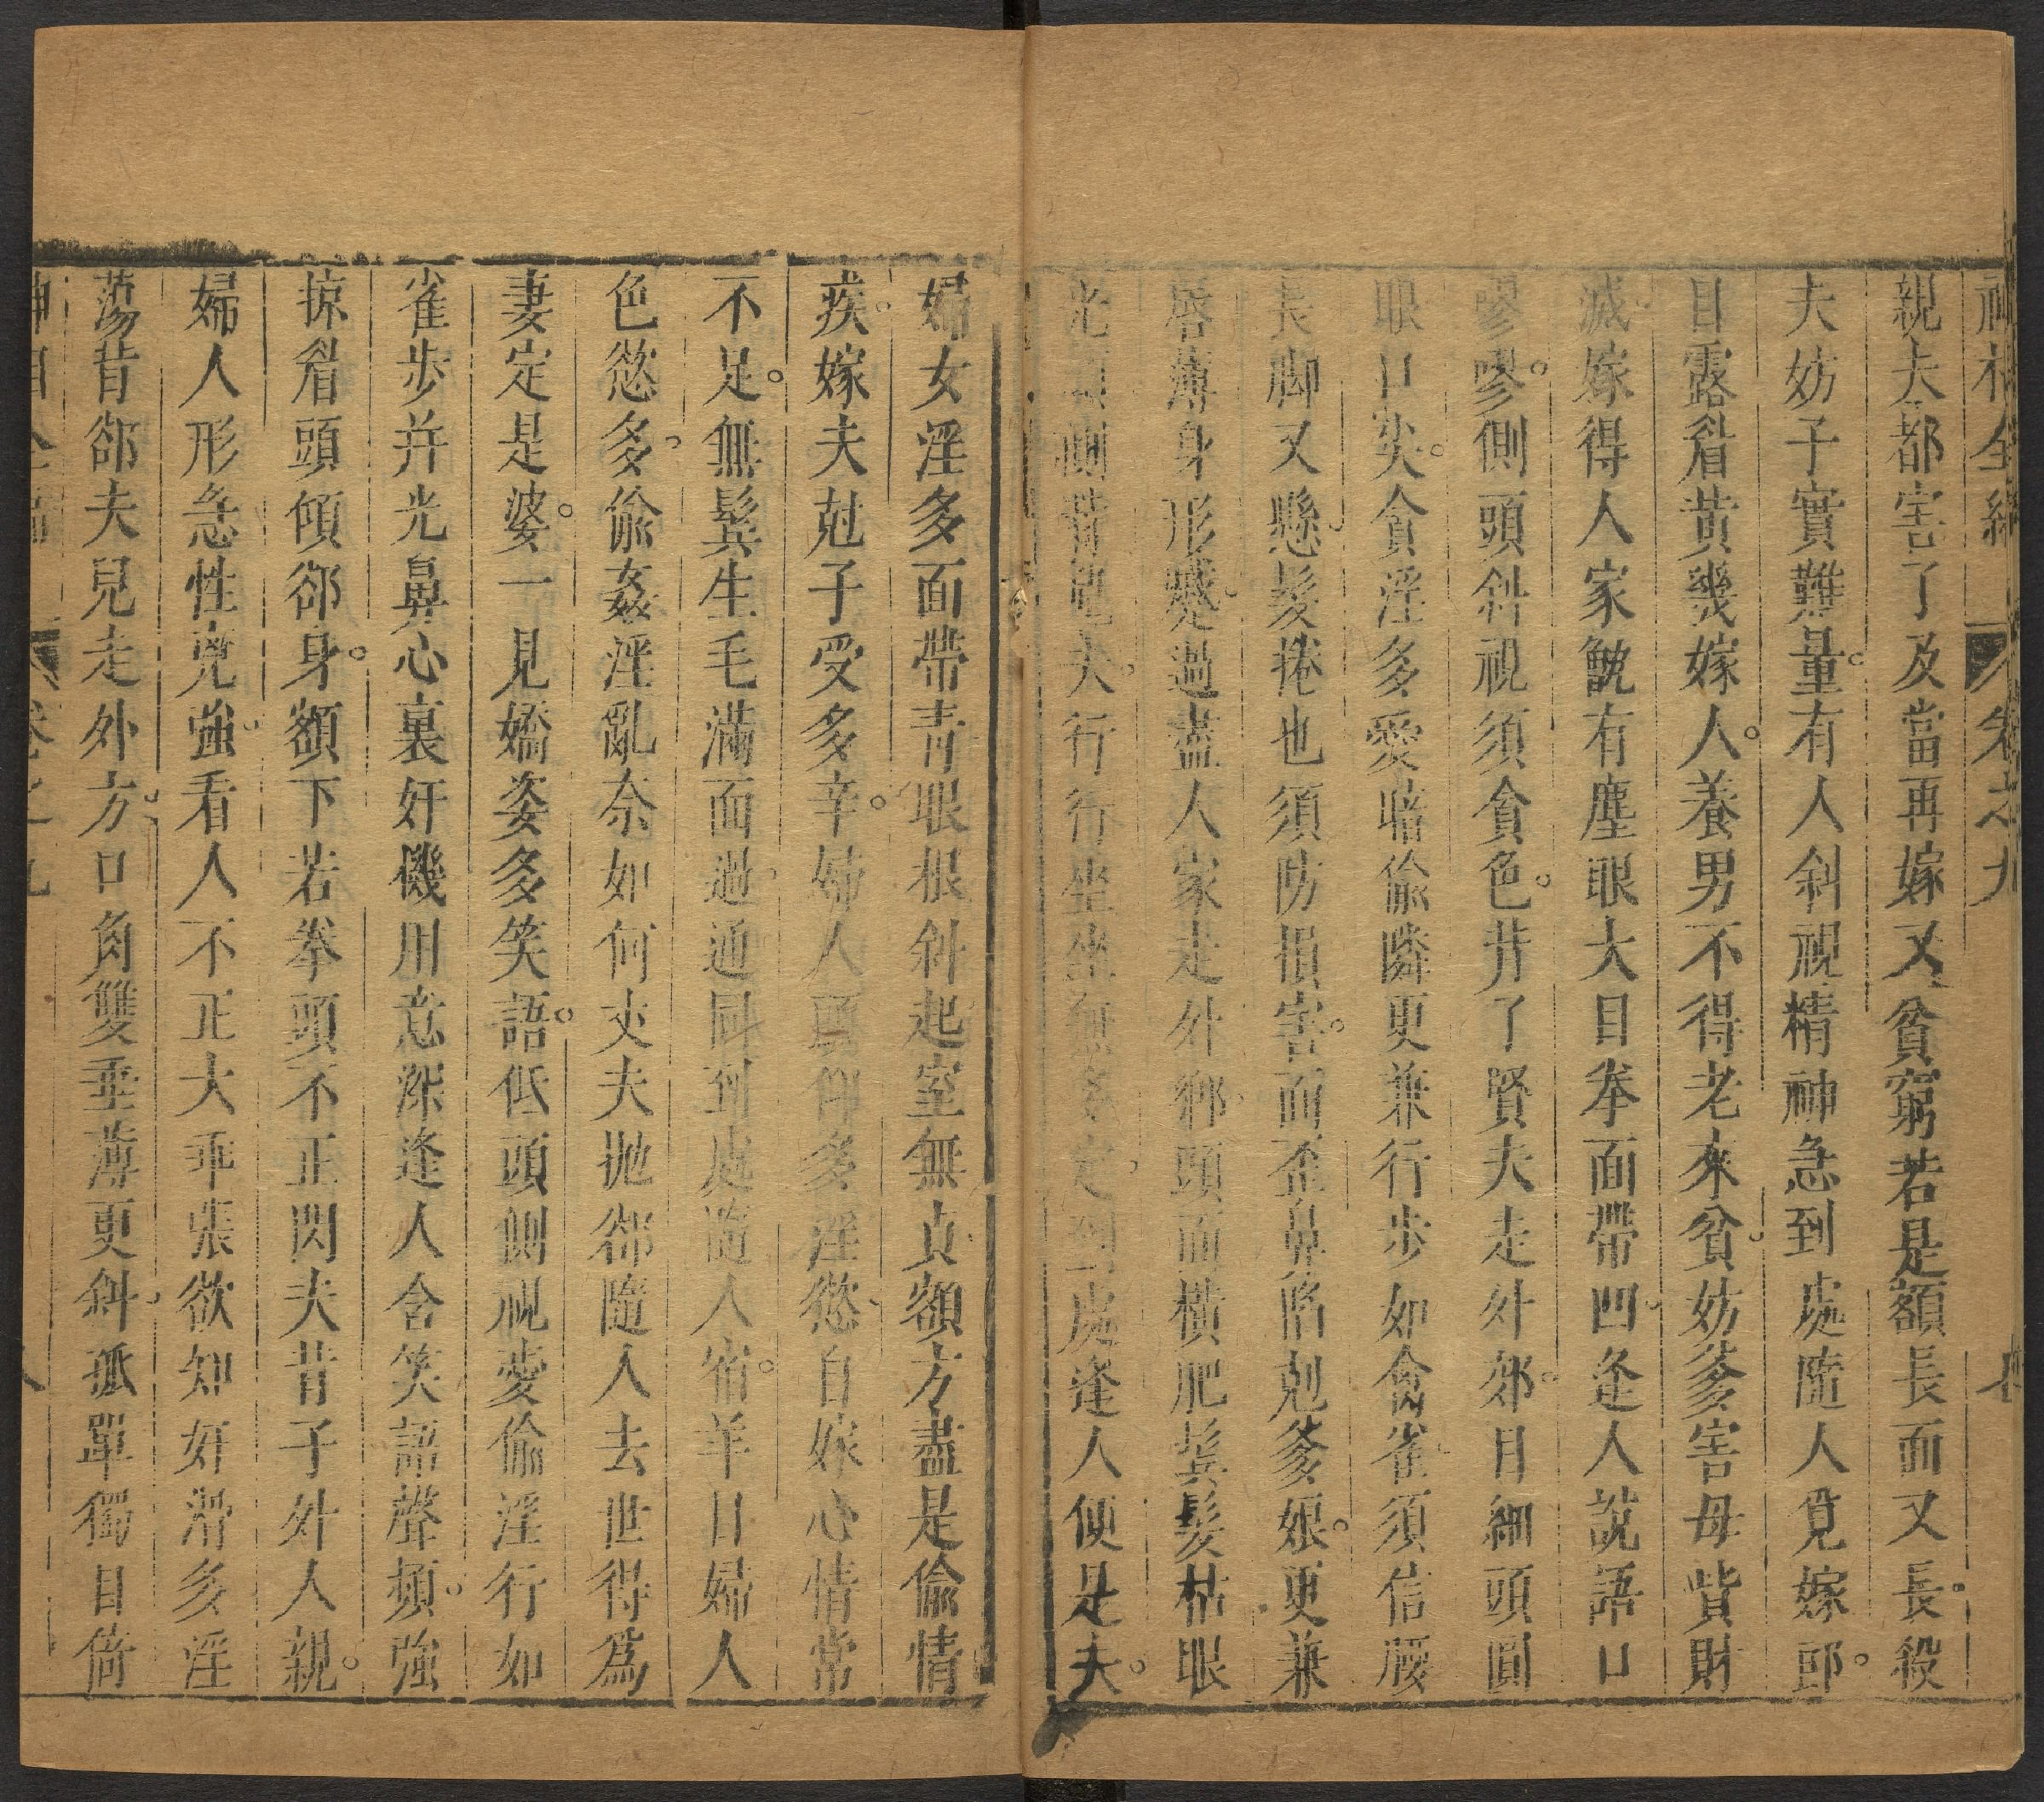 神相全編 卷之九 七
親夫都害了及當再嫁又貧窮若是額長面又長殺
夫妨子實難量有人斜視精神急到處隨人覓嫁郎
目露眉黃幾嫁人養男不得老來貧妨爹害母貲財
滅嫁得人家甑有塵眼大目拳面帶凹逢人說語口
嘐嘐側頭斜視須貪色背了賢夫走外郊目細頭圓
眼口尖貪淫多愛暗偷隣更兼行步如禽雀須信腰
長脚又懸髮捲也須防損害面歪鼻陷剋爹娘更兼
唇薄身形蹙過盡人家走外鄉頭面橫肥鬂髮枯眼
光頭側背 夫行行坐坐無 定到處逢人便是夫
婦女淫多面帶青眼根斜起室無貞額方盡是偷情
疾嫁夫尅子受多辛婦人頭仰多淫慾自嫁心情常
不足無鬂生毛滿面過通同到處隨人宿羊目婦人
色慾多偷姦淫亂奈如何丈夫拋郤隨人去世得為
妻定是婆一見嬌姿多笑語低頭側視愛偷淫行如
雀步并光鼻心裏奸機用意深逢人含笑語聲頻強
掠眉頭傾郤身額下若拳頭不正閃夫背子外人親
婦人形急性兇強看人不正大乖張欲知奸滑多淫
蕩背郤夫兒走外方口角雙垂薄更斜孤單獨目倚